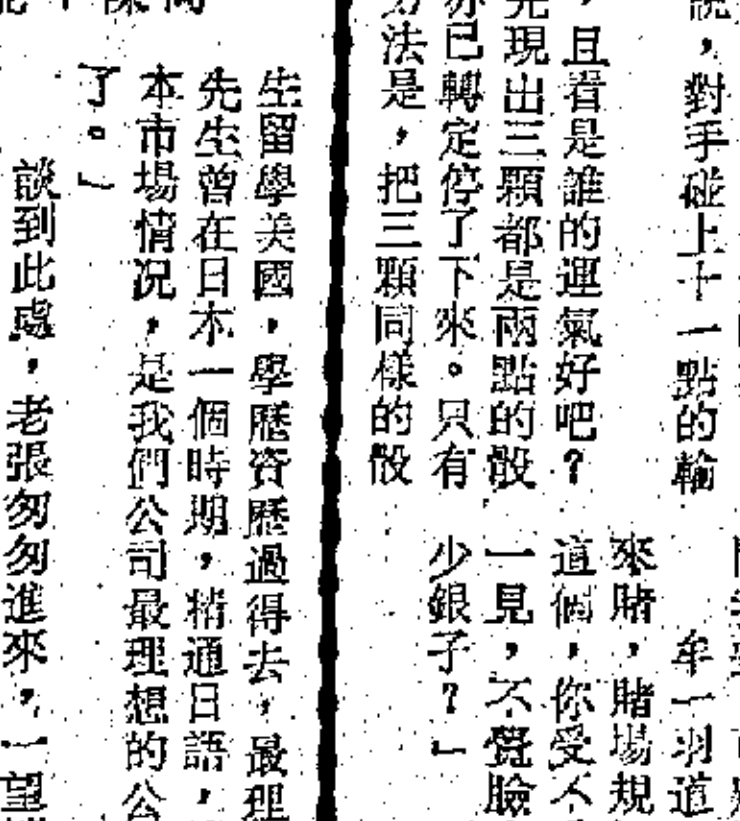 說，對手碰上十一點的輪
，且看是誰的運氣好吧？
現出三顆都是兩點的骰
亦已轉定停了下來。只有
方法是，把三顆同樣的骰
牟一羽道
來賭，賭場規
這個，你受不
一見，不覺臉
少銀子？」
生留學美國，學歷資歷過得去，最理
先生曾在日本一個時期，精通日語，
本市場情況，是我們公司最理想的公
了。」
談到此處，老張匆匆進來，一望